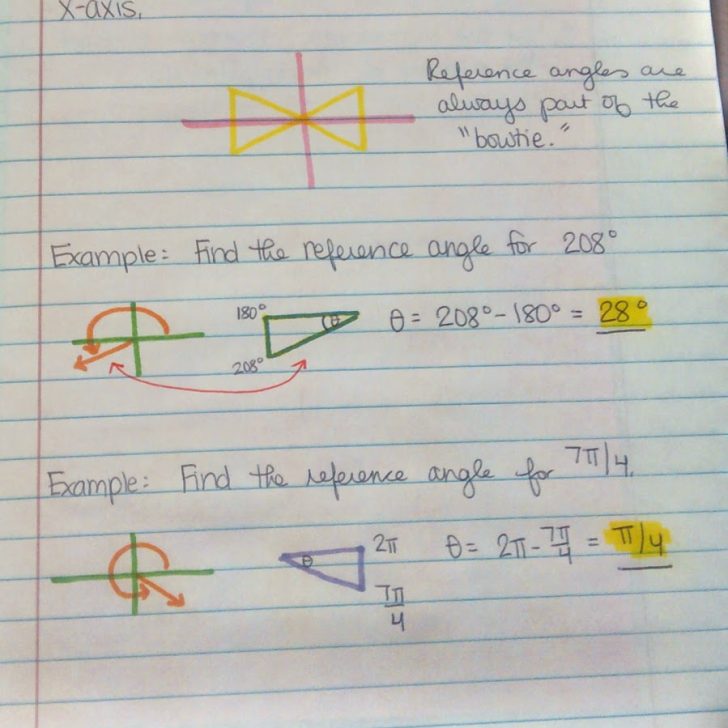 x-axis.
Reference angles are
always part of the
"bowtie."
Example: Find the reference angle for 208°
180°
θ
208°
θ = 208° - 180° = 28°
Example: Find the reference angle for 7π/4.
θ
2π
7π/4
θ = 2π - 7π/4 = π/4